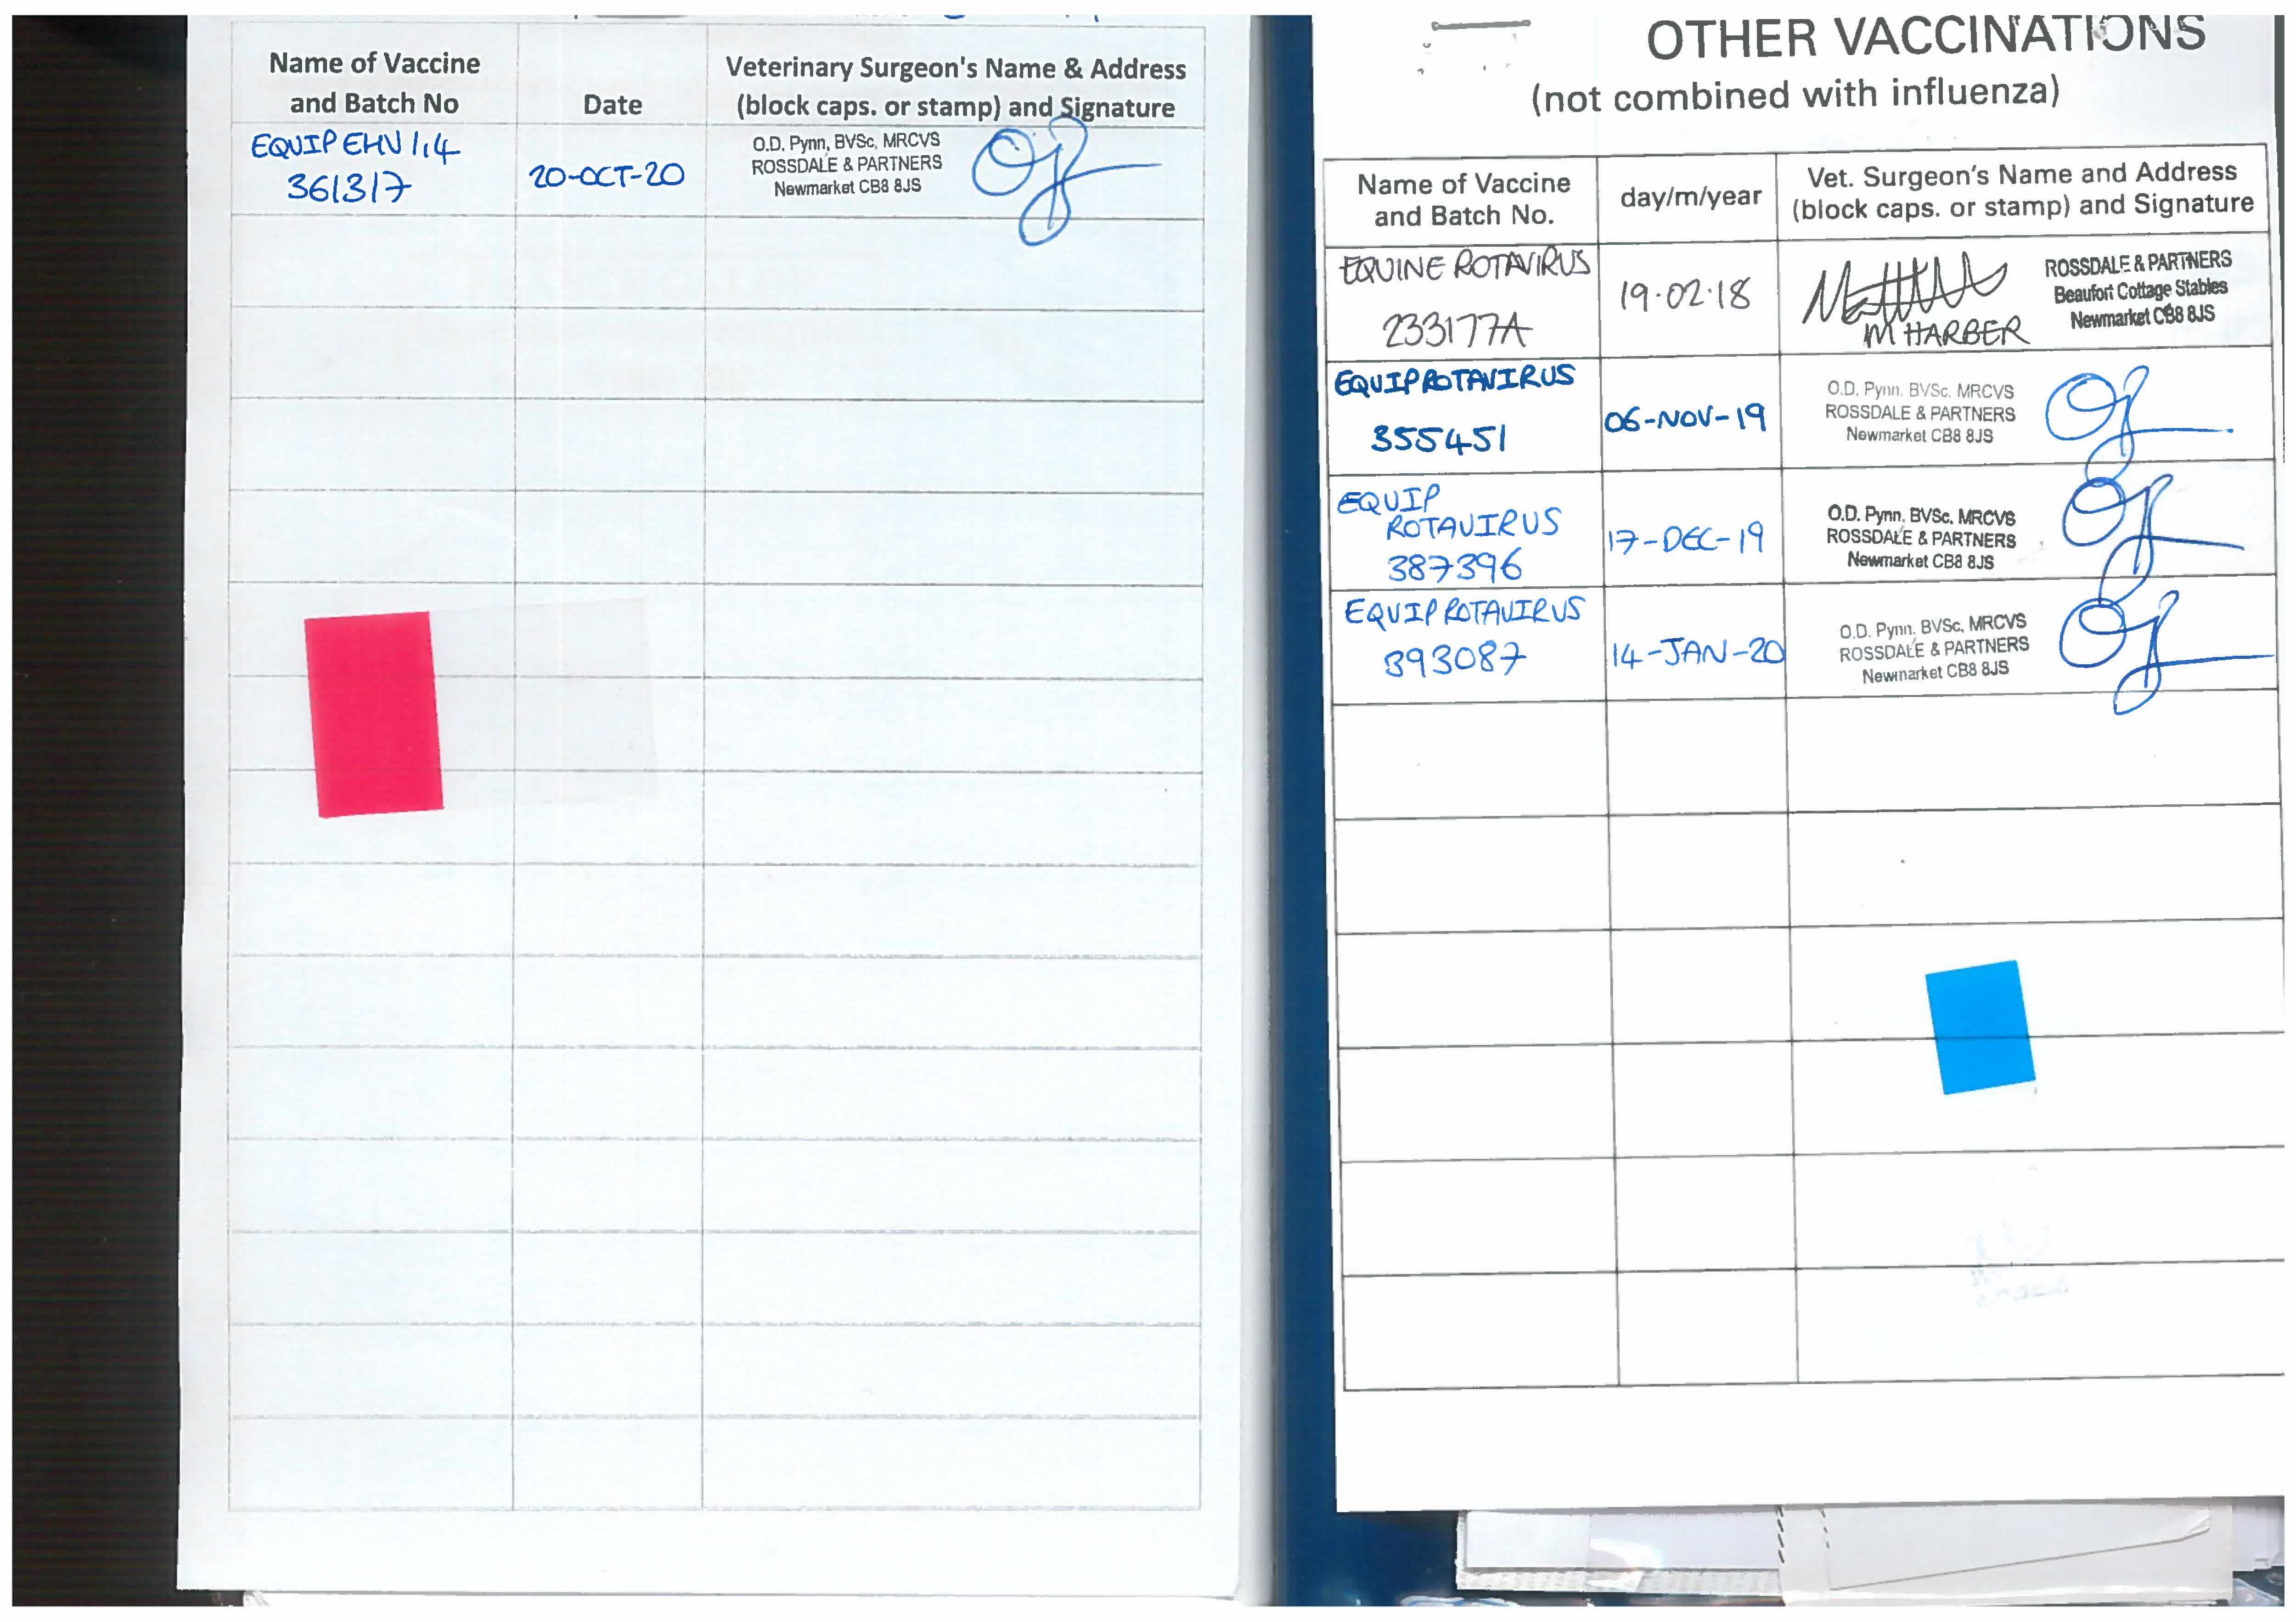 Name of Vaccine
and Batch No
Date
Veterinary Surgeon's Name & Address
(block caps. or stamp) and Signature
EQUIP EHV 1,4
361317
20-OCT-20
O.D. Pynn, BVSc, MRCVS
ROSSDALE & PARTNERS
Newmarket CB8 8JS
OTHER VACCINATIONS
(not combined with influenza)
Name of Vaccine
and Batch No.
day/m/year
Vet. Surgeon's Name and Address
(block caps. or stamp) and Signature
EQUINE ROTAVIRUS
233177A
19.02.18
M HARBER
ROSSDALE & PARTNERS
Beaufort Cottage Stables
Newmarket CB8 8JS
EQUIP ROTAVIRUS
355451
06-NOV-19
O.D. Pynn. BVSc. MRCVS
ROSSDALE & PARTNERS
Newmarket CB8 8JS
EQUIP
ROTAVIRUS
387396
17-DEC-19
O.D. Pynn. BVSc. MRCVS
ROSSDALE & PARTNERS
Newmarket CB8 8JS
EQUIP ROTAVIRUS
393087
14-JAN-20
O.D. Pynn. BVSc, MRCVS
ROSSDALE & PARTNERS
Newmarket CB8 8JS